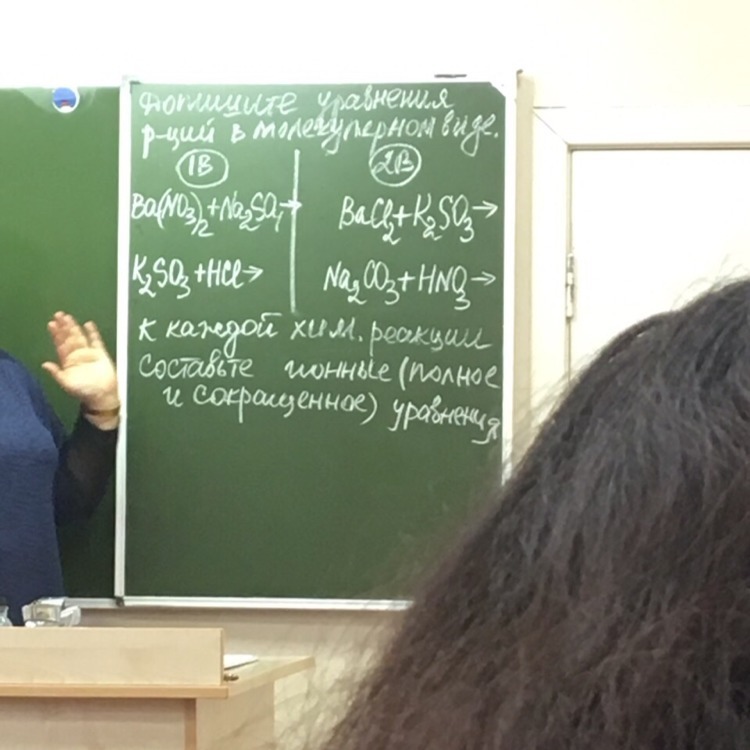 Допишите уравнения
р-ций в молекулярном виде.
1В 2В
Ba(NO₃)₂+Na₂SO₄→ BaCl₂+K₂SO₃→
K₂SO₃+HCl→ Na₂CO₃+HNO₃→
К каждой хим. реакции
составьте ионные (полное
и сокращенное) уравнения